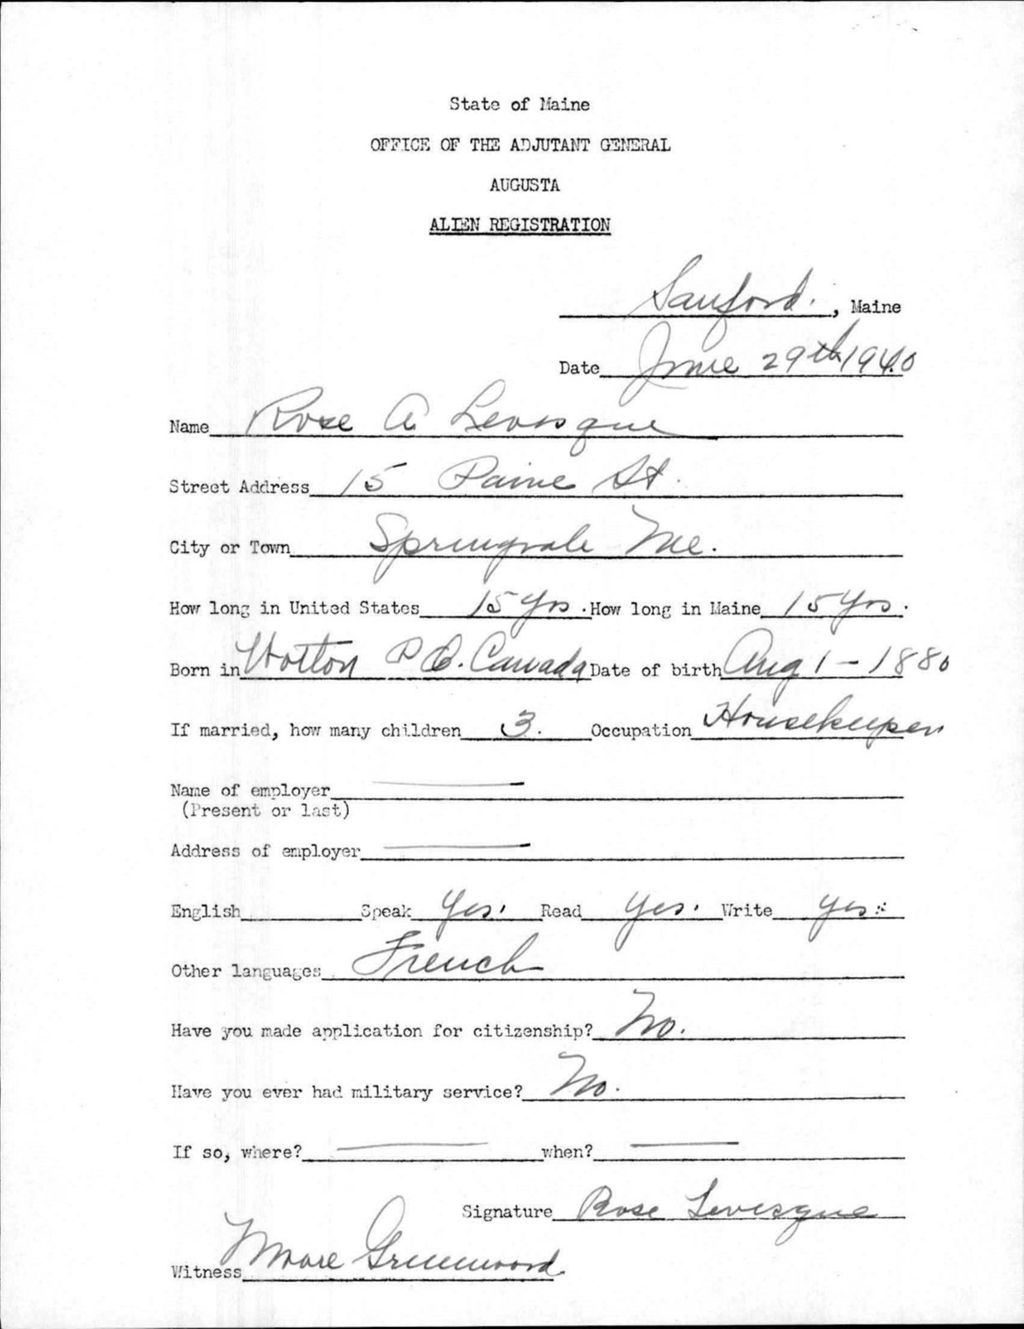 State of Maine
OFFICE OF THE ADJUTANT GENERAL
AUGUSTA
ALIEN REGISTRATION
Sanford. , Maine
Date June 29th 1940
Name Rose A Levesque
Street Address 15 Paine St.
City or Town Springvale Me.
How long in United States 15 yrs. How long in Maine 15 yrs.
Born in Wotton P Q. Canada Date of birth Aug 1 - 1880
If married, how many children 3. Occupation Housekeeper
Name of employer
(Present or last)
Address of employer
English Speak Yes. Read Yes. Write yes.
Other languages French
Have you made application for citizenship? No.
Have you ever had military service? No.
If so, where? when?
Signature Rose Levesque
Witness Greenwood